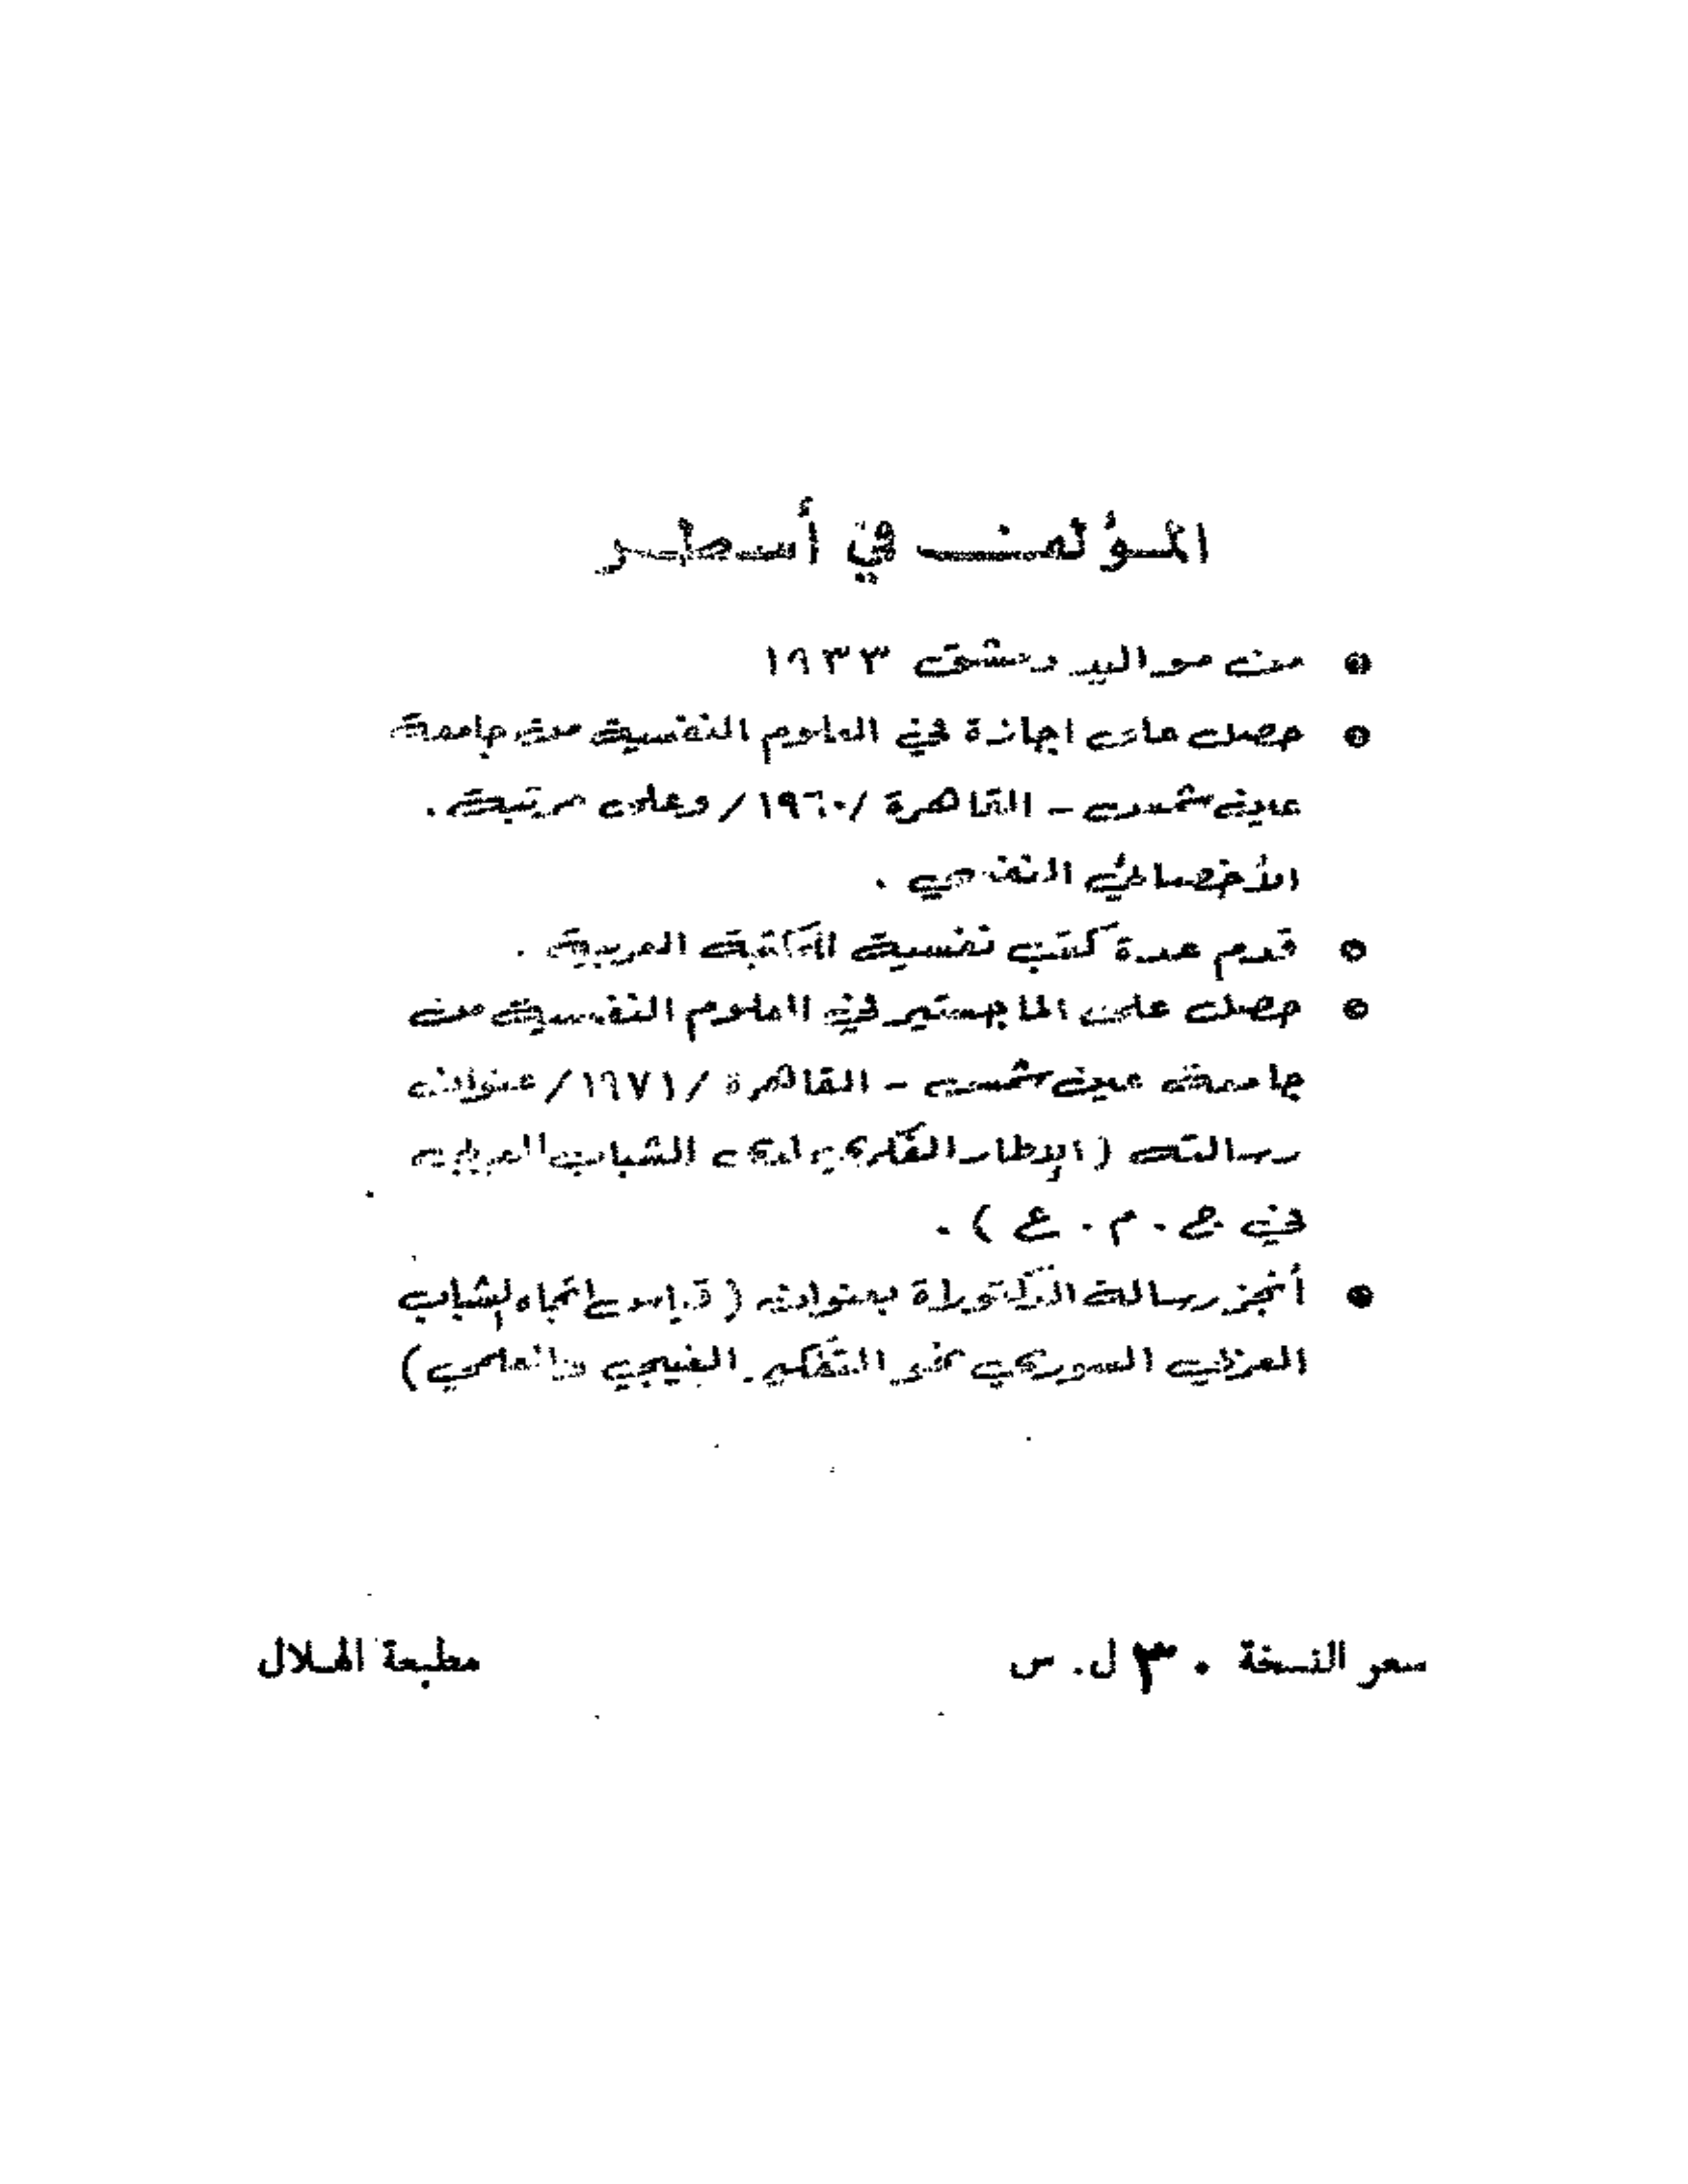 المؤلف في أسطر
من مواليد دمشق ١٩٣٣
حصل على اجازة في العلوم النفسية من جامعة
عين شمس - القاهرة /١٩٦٠/ وعلى مرتبة .
الأخصائي النفسي .
قدم عدة كتب نفسية للمكتبة العربية .
حصل على الماجستير في العلوم النفسية من
جامعة عين شمس - القاهرة /١٩٧١/ عنوان
رسالته ( الإطار الفكري لدى الشباب العربي
في ج . م . ع ) .
أنجز رسالة الدكتوراة بعنوان ( قياس اتجاه الشباب
العربي السوري نحو التفكير الغيبي والعلمي )
سعر النسخة ٣٠ ل. س
مطبعة الهلال